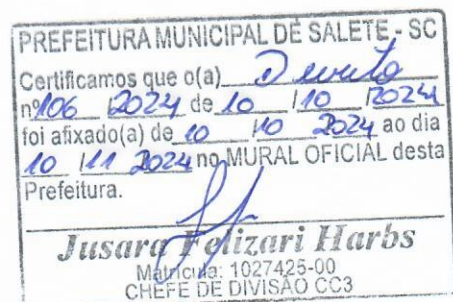 PREFEITURA MUNICIPAL DE SALETE - SC
Certificamos que o(a) Decreto
nº 106 /2024 de 10 /10 /2024
foi afixado(a) de 10 /10 2024 ao dia
10 /11 2024 no MURAL OFICIAL desta
Prefeitura.
Jusara Felizari Harbs
Matrícula: 1027425-00
CHEFE DE DIVISÃO CC3